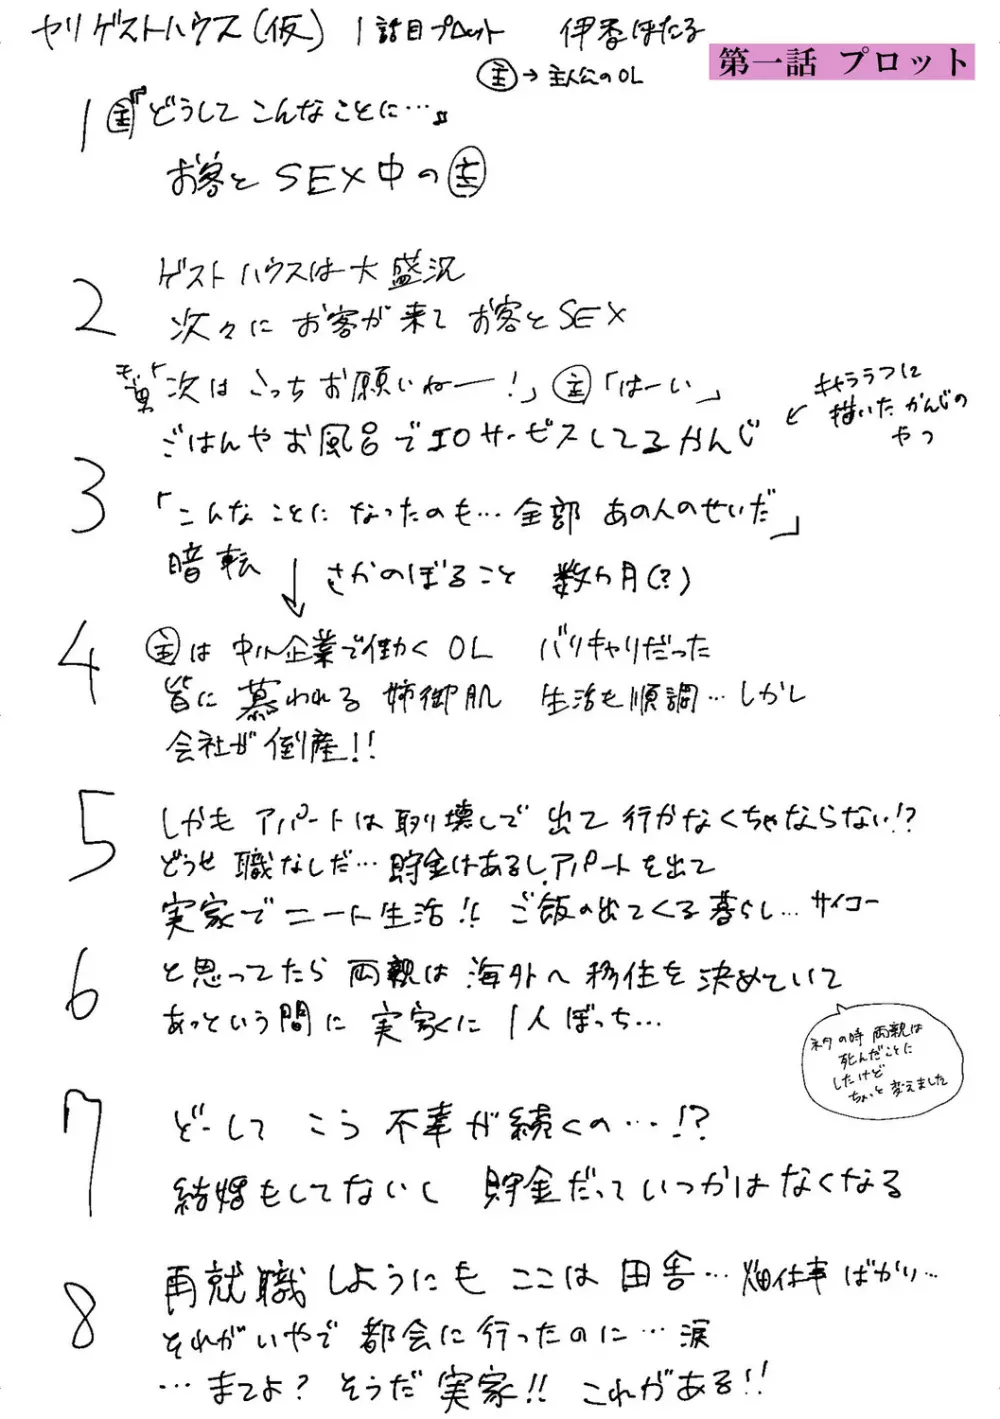 ヤリゲストハウス(仮) 1話目プロット 伊香ほたる
第一話 プロット
主→主人公のOL
1 主『どうしてこんなことに…』
お客とSEX中の主
2 ゲストハウスは大盛況
次々にお客が来てお客とSEX
モブ男「次はこっちお願いねー!」主「はーい」
ごはんやお風呂でエロサービスしてるかんじ
←キャララフに
描いたかんじの
やつ
3 「こんなことになったのも…全部あの人のせいだ」
暗転 ↓ さかのぼること 数ヵ月(?)
4 主は中小企業で働くOL バリキャリだった
皆に慕われる姉御肌 生活も順調…しかし
会社が倒産!!
5 しかもアパートは取り壊しで出て行かなくちゃならない!?
どうせ職なしだ…貯金はあるしアパートを出て
実家でニート生活!! ご飯の出てくる暮らし…サイコー
6 と思ってたら両親は海外へ移住を決めていて
あっという間に実家に1人ぼっち…
ネタの時両親は
死んだことに
したけど
ちょっと変えました
7 どーしてこう不幸が続くの…!?
結婚もしてないし 貯金だっていつかはなくなる
8 再就職しようにもここは田舎…畑仕事ばかり…
それがいやで都会に行ったのに…涙
…まてよ?そうだ実家!!これがある!!